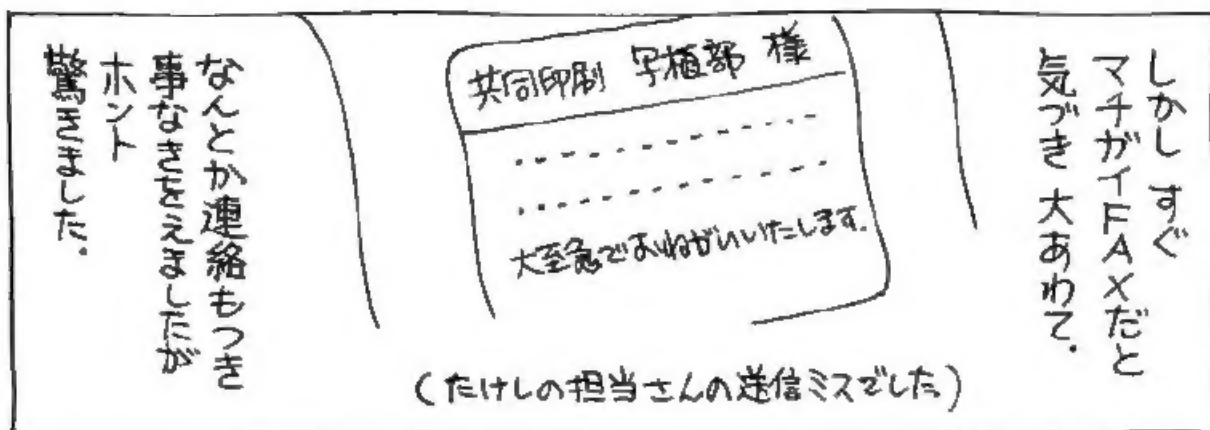 しかし すぐ
マチガイFAXだと
気づき 大あわて.
共同印刷 写植部 様
大至急でおねがいいたします.
(たけしの担当さんの送信ミスでした)
なんとか連絡もつき
事なきをえましたが
ホント
驚きました.